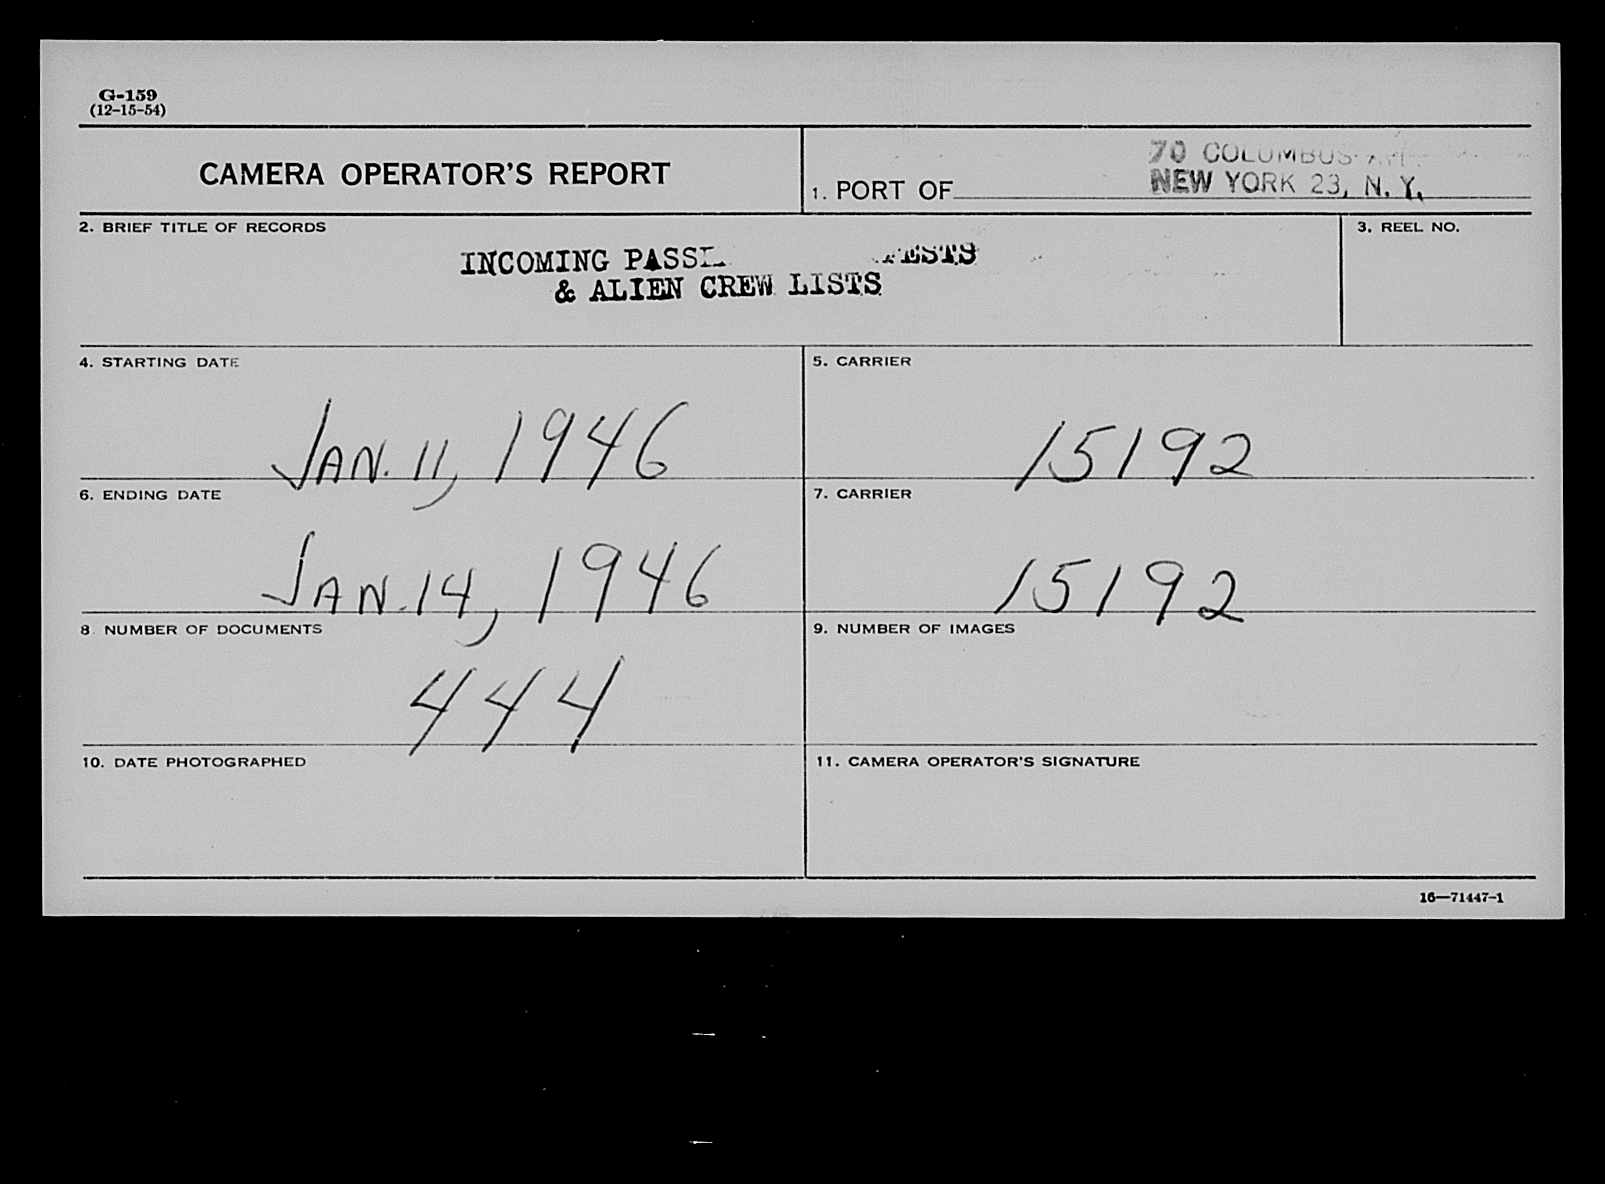 G-159
(12-15-54)
CAMERA OPERATOR'S REPORT
70 COLUMBUS
1. PORT OF NEW YORK 23, N. Y.
2. BRIEF TITLE OF RECORDS
3. REEL NO.
INCOMING
& ALIEN CREW LISTS
4. STARTING DATE
5. CARRIER
JAN. 11, 1946
15192
6. ENDING DATE
7. CARRIER
JAN. 14, 1946
15192
8 NUMBER OF DOCUMENTS
9. NUMBER OF IMAGES
444
10. DATE PHOTOGRAPHED
11. CAMERA OPERATOR'S SIGNATURE
16—71447-1